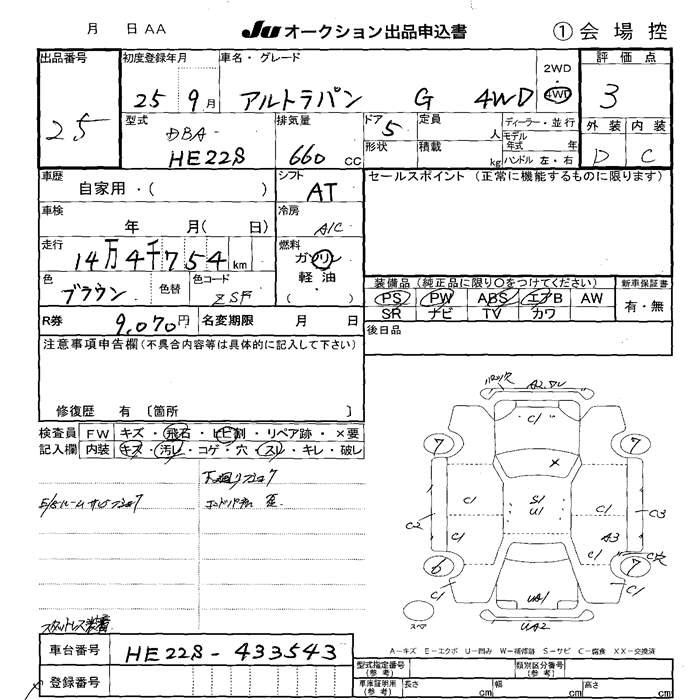 月　日 AA
Ju オークション出品申込書　① 会 場 控
出品番号　初度登録年月　車名・グレード　2WD・4WD　評価点
25　25 9月　アルトラパン　G　4WD　3
型式　DBA-　HE22S
排気量　660 CC
ドア 5　定員　人
形状　積載　kg
ディーラー・並行
モデル年式　年
ハンドル 左・右
外装　内装
D　C
車歴　自家用・(　)
シフト　AT
セールスポイント (正常に機能するものに限ります)
車検　年　月(　日)
冷房　A/C
走行　14万4千754 km
燃料　ガソリン
軽・油
(・)
色　ブラウン　色替　色コード　ZSF
装備品 (純正品に限り○をつけてください)　新車保証書
PS　PW　ABS　エアB　AW　有・無
SR　ナビ　TV　カワ
R券　9,070円　名変期限　月　日
後日品
注意事項申告欄 (不具合内容等は具体的に記入して下さい)
修復歴　有　〔箇所　〕
検査員　FW　キズ・飛石・ヒビ割・リペア跡・×要
記入欄　内装　キズ・汚レ・コゲ・穴・スレ・キレ・破レ
下廻りサビ
A2
C1
7　7
C1　S1　U1　C1
C2　C3
C1　A3
C1　C1
6　7
C1　UA1　C1
UA2
スペア
スタットレス装着
A－キズ　E－エクボ　U－凹み　W－補修跡　S－サビ　C－腐食　XX－交換済
車台番号　HE22S-433543
登録番号
型式指定番号(参考)　類別区分番号(参考)
車庫証明用(参考)　長さ　cm　幅　cm　高さ　cm